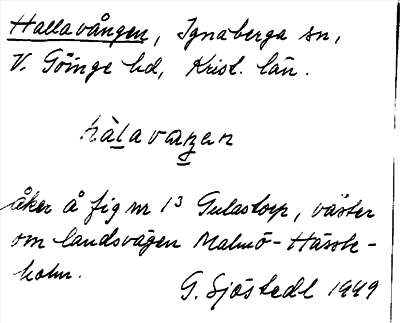 Hallavången, Ignaberga sn,
V. Göinge hd, Krist. län.
hàlavaŋen
åker å fig nr 13 Gulastorp, väster
om landsvägen Malmö-Hässle-
holm.
G. Sjöstedt 1949